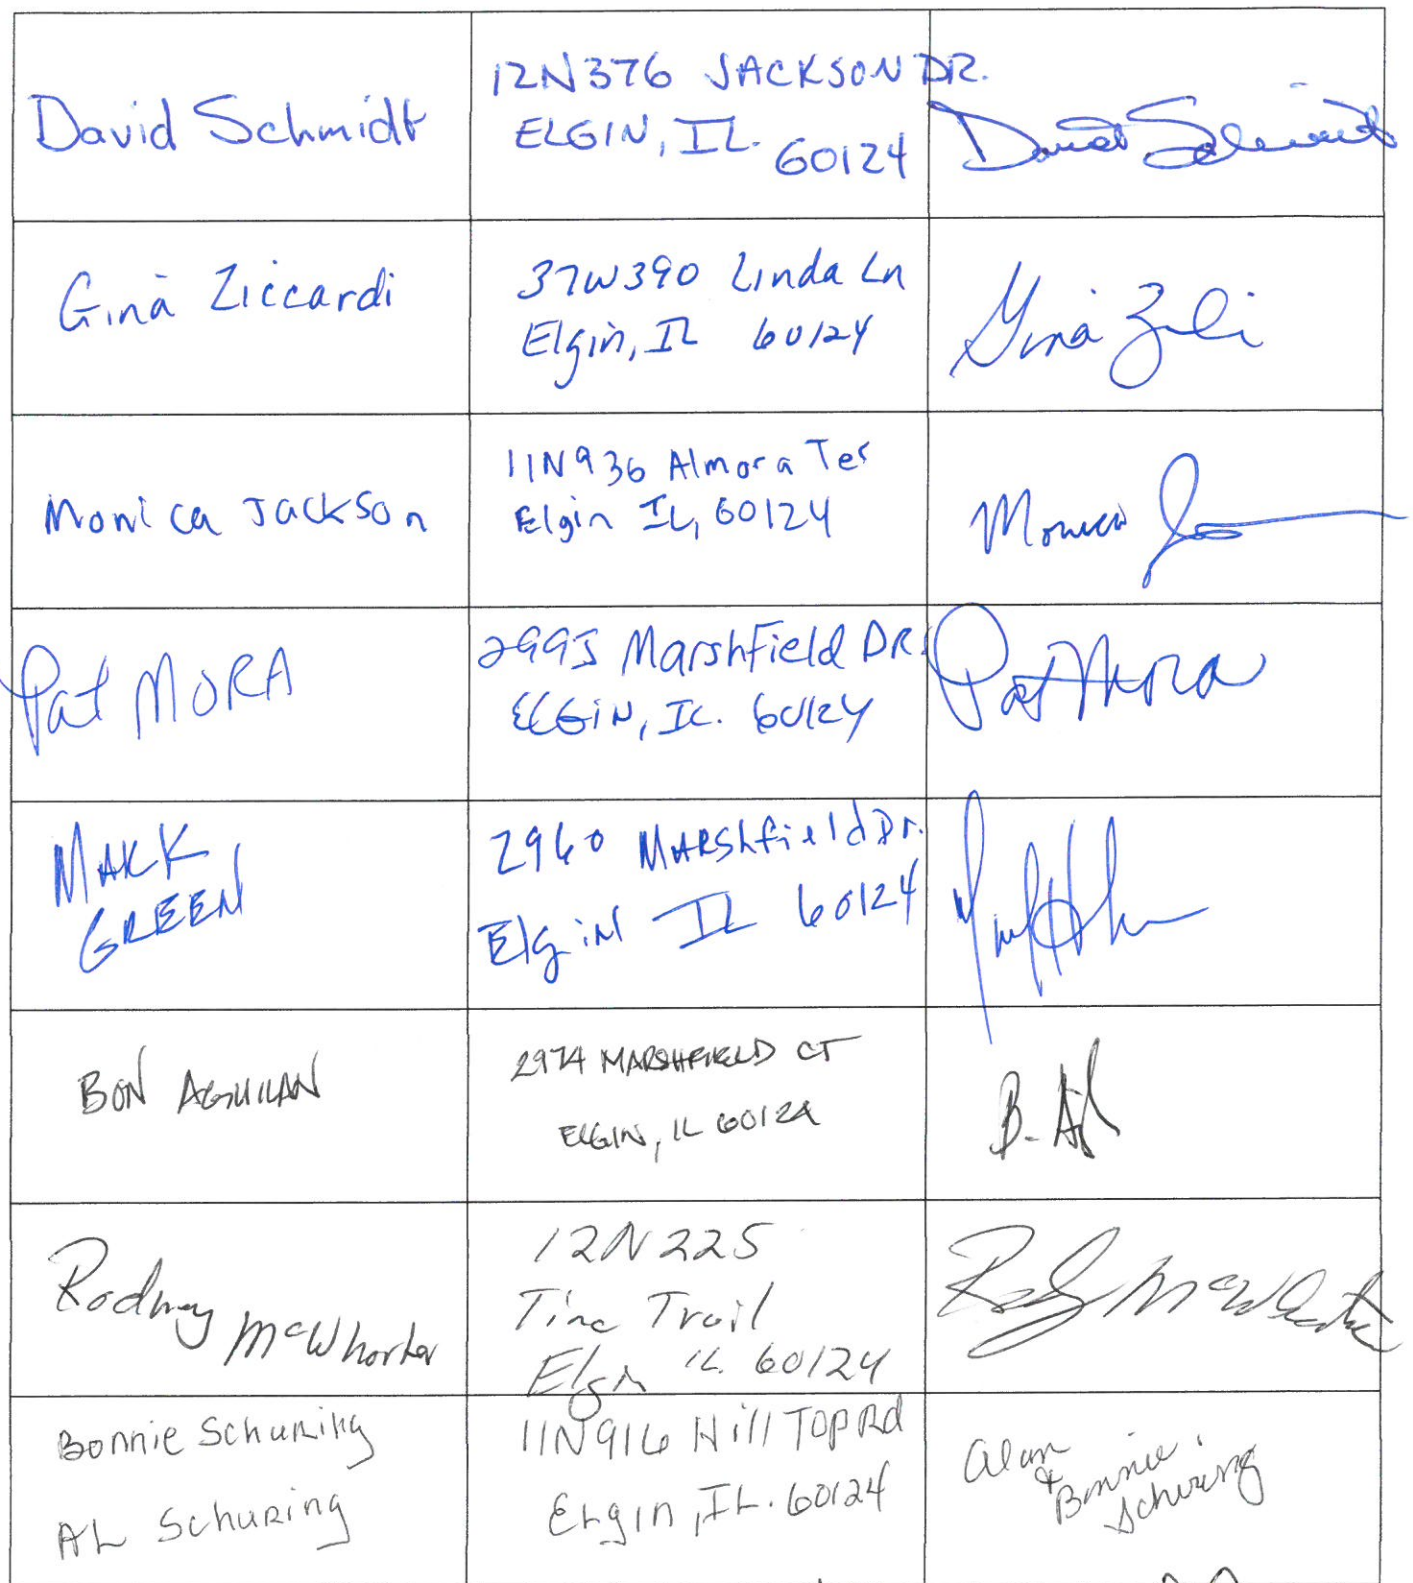 David Schmidt
12N376 JACKSON DR.
ELGIN, IL. 60124
David Schmidt
Gina Ziccardi
37W390 Linda Ln
Elgin, IL 60124
Gina
Monica Jackson
11N936 Almora Ter
Elgin IL, 60124
Monica
Pat MORA
2995 Marshfield DR.
ELGIN, IL. 60124
Pat Mora
MARK
GREEN
2960 MARShfield Dr.
Elgin IL 60124
BON AGUILAN
2974 MARSHFIELD CT
ELGIN, IL 60124
B.
Rodney
McWhorter
12N225
Tina Trail
Elgin IL. 60124
McWhorter
Bonnie Schuring
AL Schuring
11N916 Hill Top Rd
Elgin, IL. 60124
Alan
&
Bonnie
Schuring